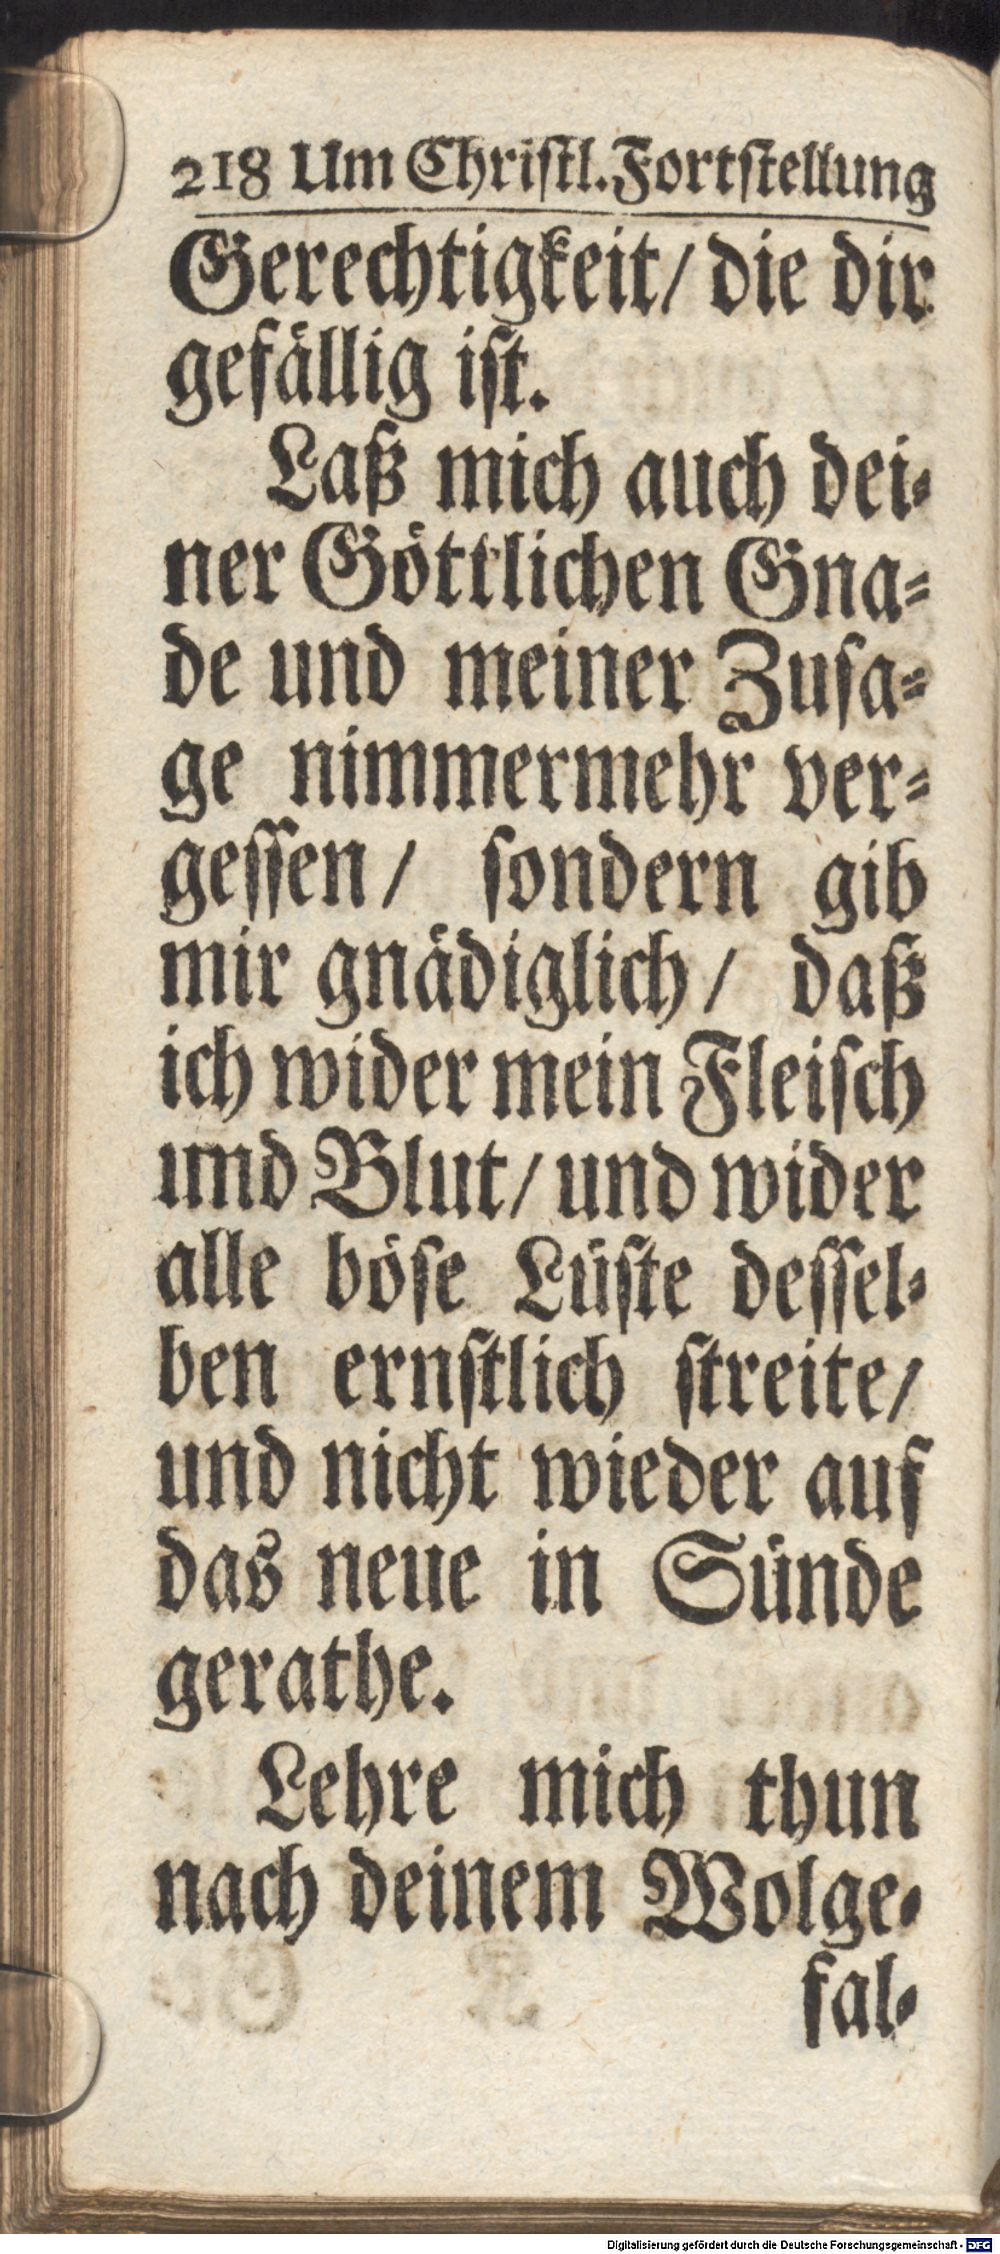 218 Um Christl. Fortstellung
Gerechtigkeit/ die dir
gefällig ist.
Laß mich auch dei-
ner Göttlichen Gna-
de und meiner Zusa-
ge nimmermehr ver-
gessen/ sondern gib
mir gnädiglich/ daß
ich wider mein Fleisch
und Blut/ und wider
alle böse Lüste dessel-
ben ernstlich streite/
und nicht wieder auf
das neue in Sünde
gerathe.
Lehre mich thun
nach deinem Wolge-
fal-
Digitalisierung gefördert durch die Deutsche Forschungsgemeinschaft - DFG